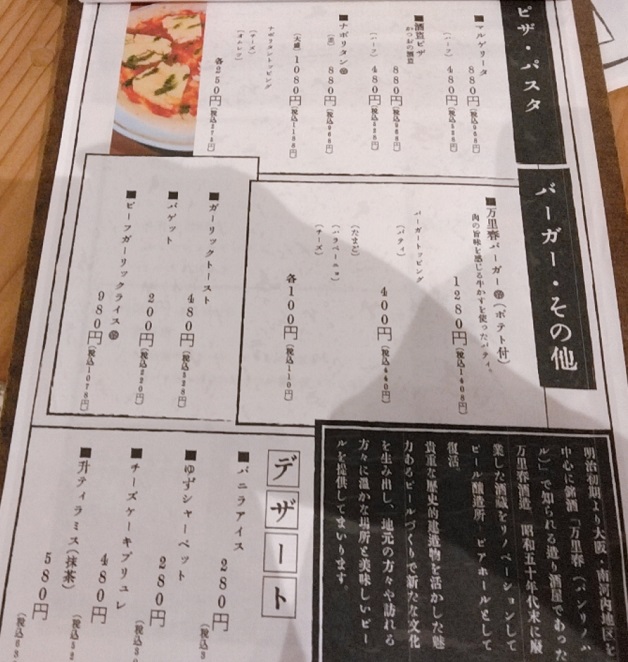 ピザ・パスタ
■マルゲリータ
880円(税込968円)
(ハーフ)
480円(税込528円)
■酒盗ピザ
かつおの酒盗
880円(税込968円)
(ハーフ)
480円(税込528円)
■ナポリタン
880円(税込968円)
(大盛)
1080円(税込1188円)
ナポリタントッピング
(チーズ)
(オムレツ)
各250円(税込275円)
バーガー・その他
■万里春バーガー(ポテト付)
肉の旨味を感じる牛かすを使ったパティ。
1280円(税込1408円)
バーガートッピング
(パティ)
400円(税込440円)
(たまご)
(ハラペーニョ)
(チーズ)
各100円(税込110円)
■ガーリックトースト
480円(税込528円)
■バゲット
200円(税込220円)
■ビーフガーリックライス
980円(税込1078円)
明治初期より大阪・南河内地区を
中心に銘酒「万里春(バンリノハ
ル)」で知られる造り酒屋であった
万里春酒造 昭和五十年代末に廃
業した酒蔵をリノベーションして
ビール醸造所、ビアホールとして
復活
貴重な歴史的建造物を活かした魅
力あるビールづくりで新たな文化
を生み出し、地元の方々や訪れる
方々に温かな場所と美味しいビー
ルを提供してまいります。
デザート
■バニラアイス
280円
■ゆずシャーベット
280円
■チーズケーキブリュレ
480円
■升ティラミス(抹茶)
580円